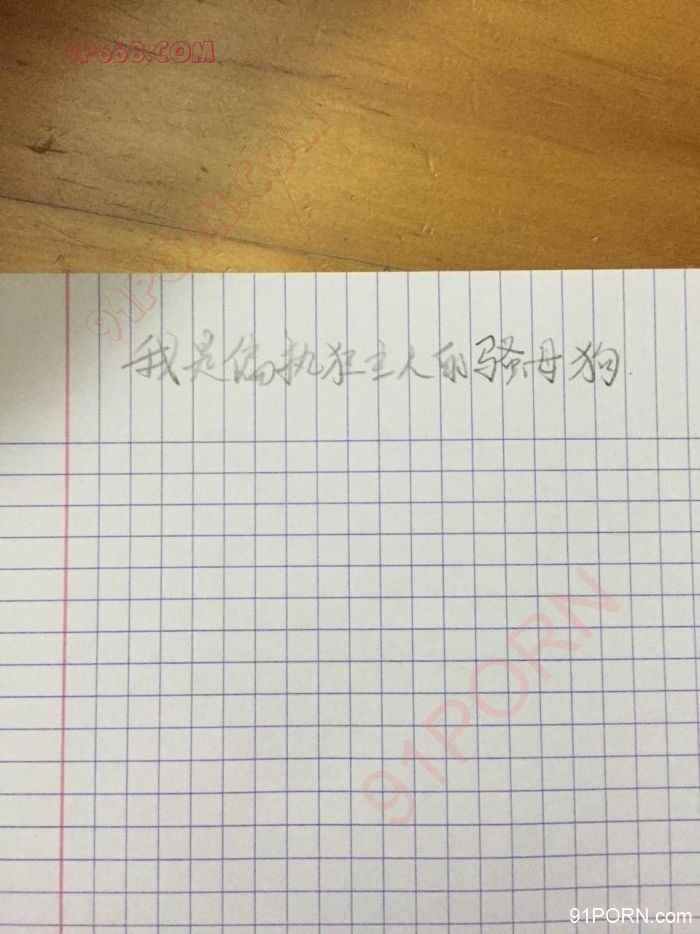 91PORN.COM
我是偏执狂主人的骚母狗.
91PORN
91PORN.com